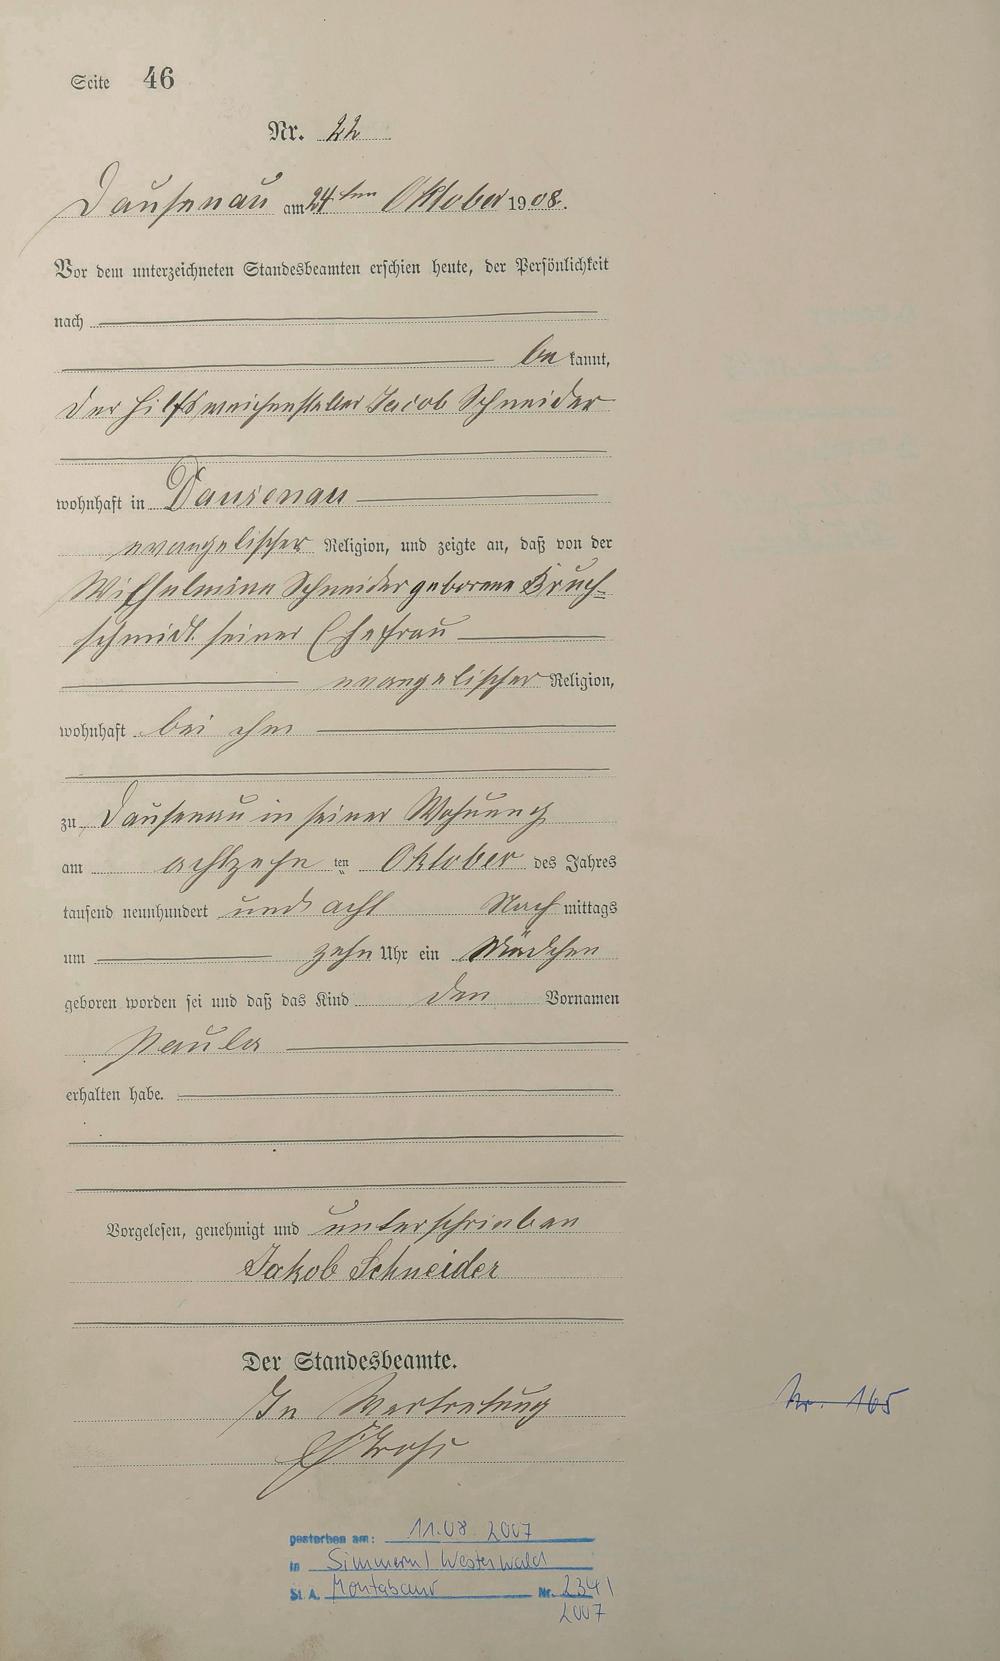 Seite 46
Nr. 22
Dausenau am 24ten Oktober 1908.
Vor dem unterzeichneten Standesbeamten erschien heute, der Persönlichkeit
nach
be kannt,
der Hilfsweichensteller Jacob Schneider
wohnhaft in Dausenau
evangelischer Religion, und zeigte an, daß von der
Wilhelmine Schneider geborene Bruch-
schmidt seiner Ehefrau
evangelischer Religion,
wohnhaft bei ihm
zu Dausenau in seiner Wohnung
am achtzehn ten Oktober des Jahres
tausend neunhundert und acht Nach mittags
um zehn Uhr ein Mädchen
geboren worden sei und daß das Kind den Vornamen
Paula
erhalten habe.
Vorgelesen, genehmigt und unterschrieben
Jakob Schneider
Der Standesbeamte.
In Vertretung
Nr. 165
gestorben am: 11.08.2007
in Simmern/Westerwald
St. A. Montabaur Nr. 234/
2007